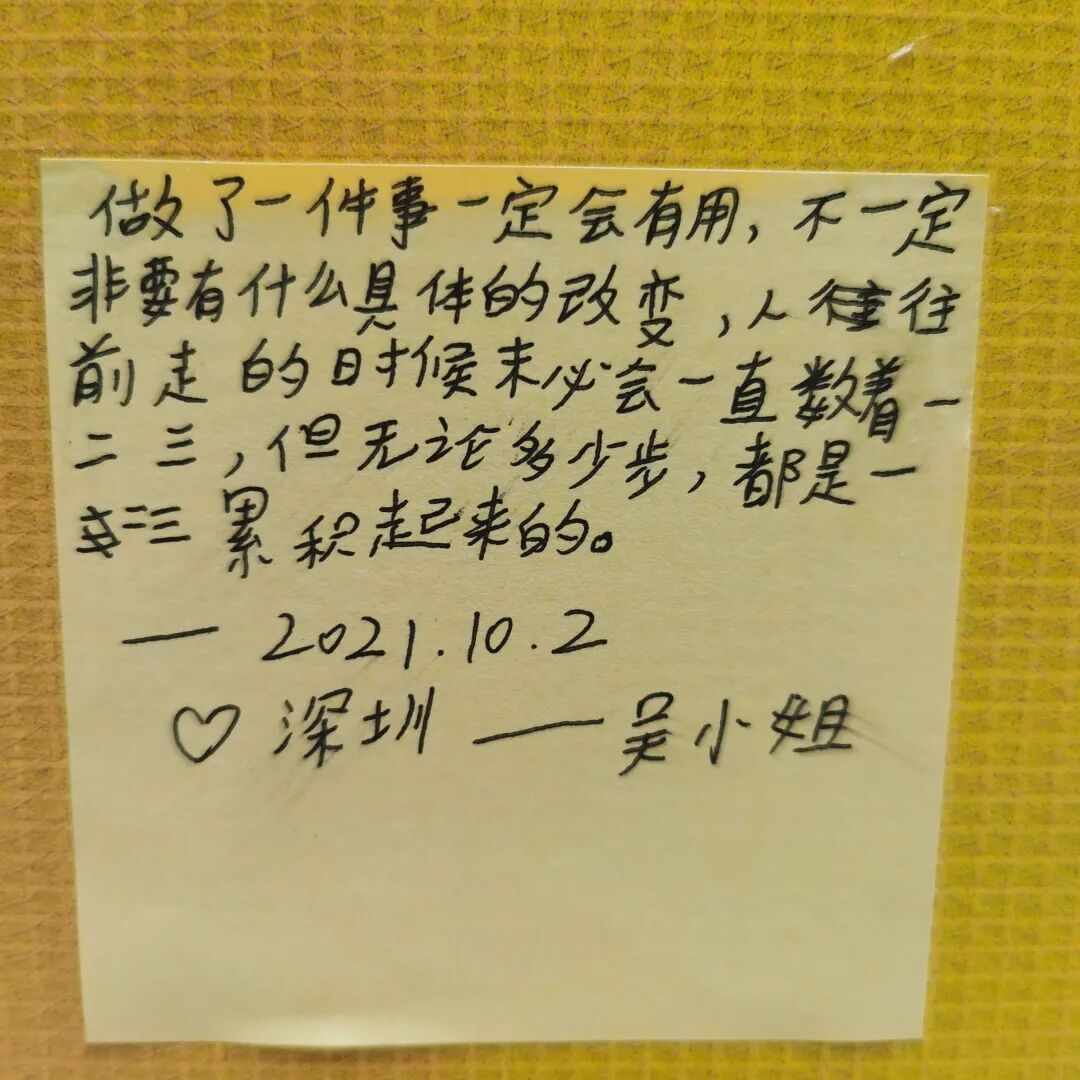 做了一件事一定会有用，不一定
非要有什么具体的改变，人往
前走的时候未必会一直数着一
二三，但无论多少步，都是一
二三累积起来的。
— 2021.10.2
♡深圳 — 吴小姐